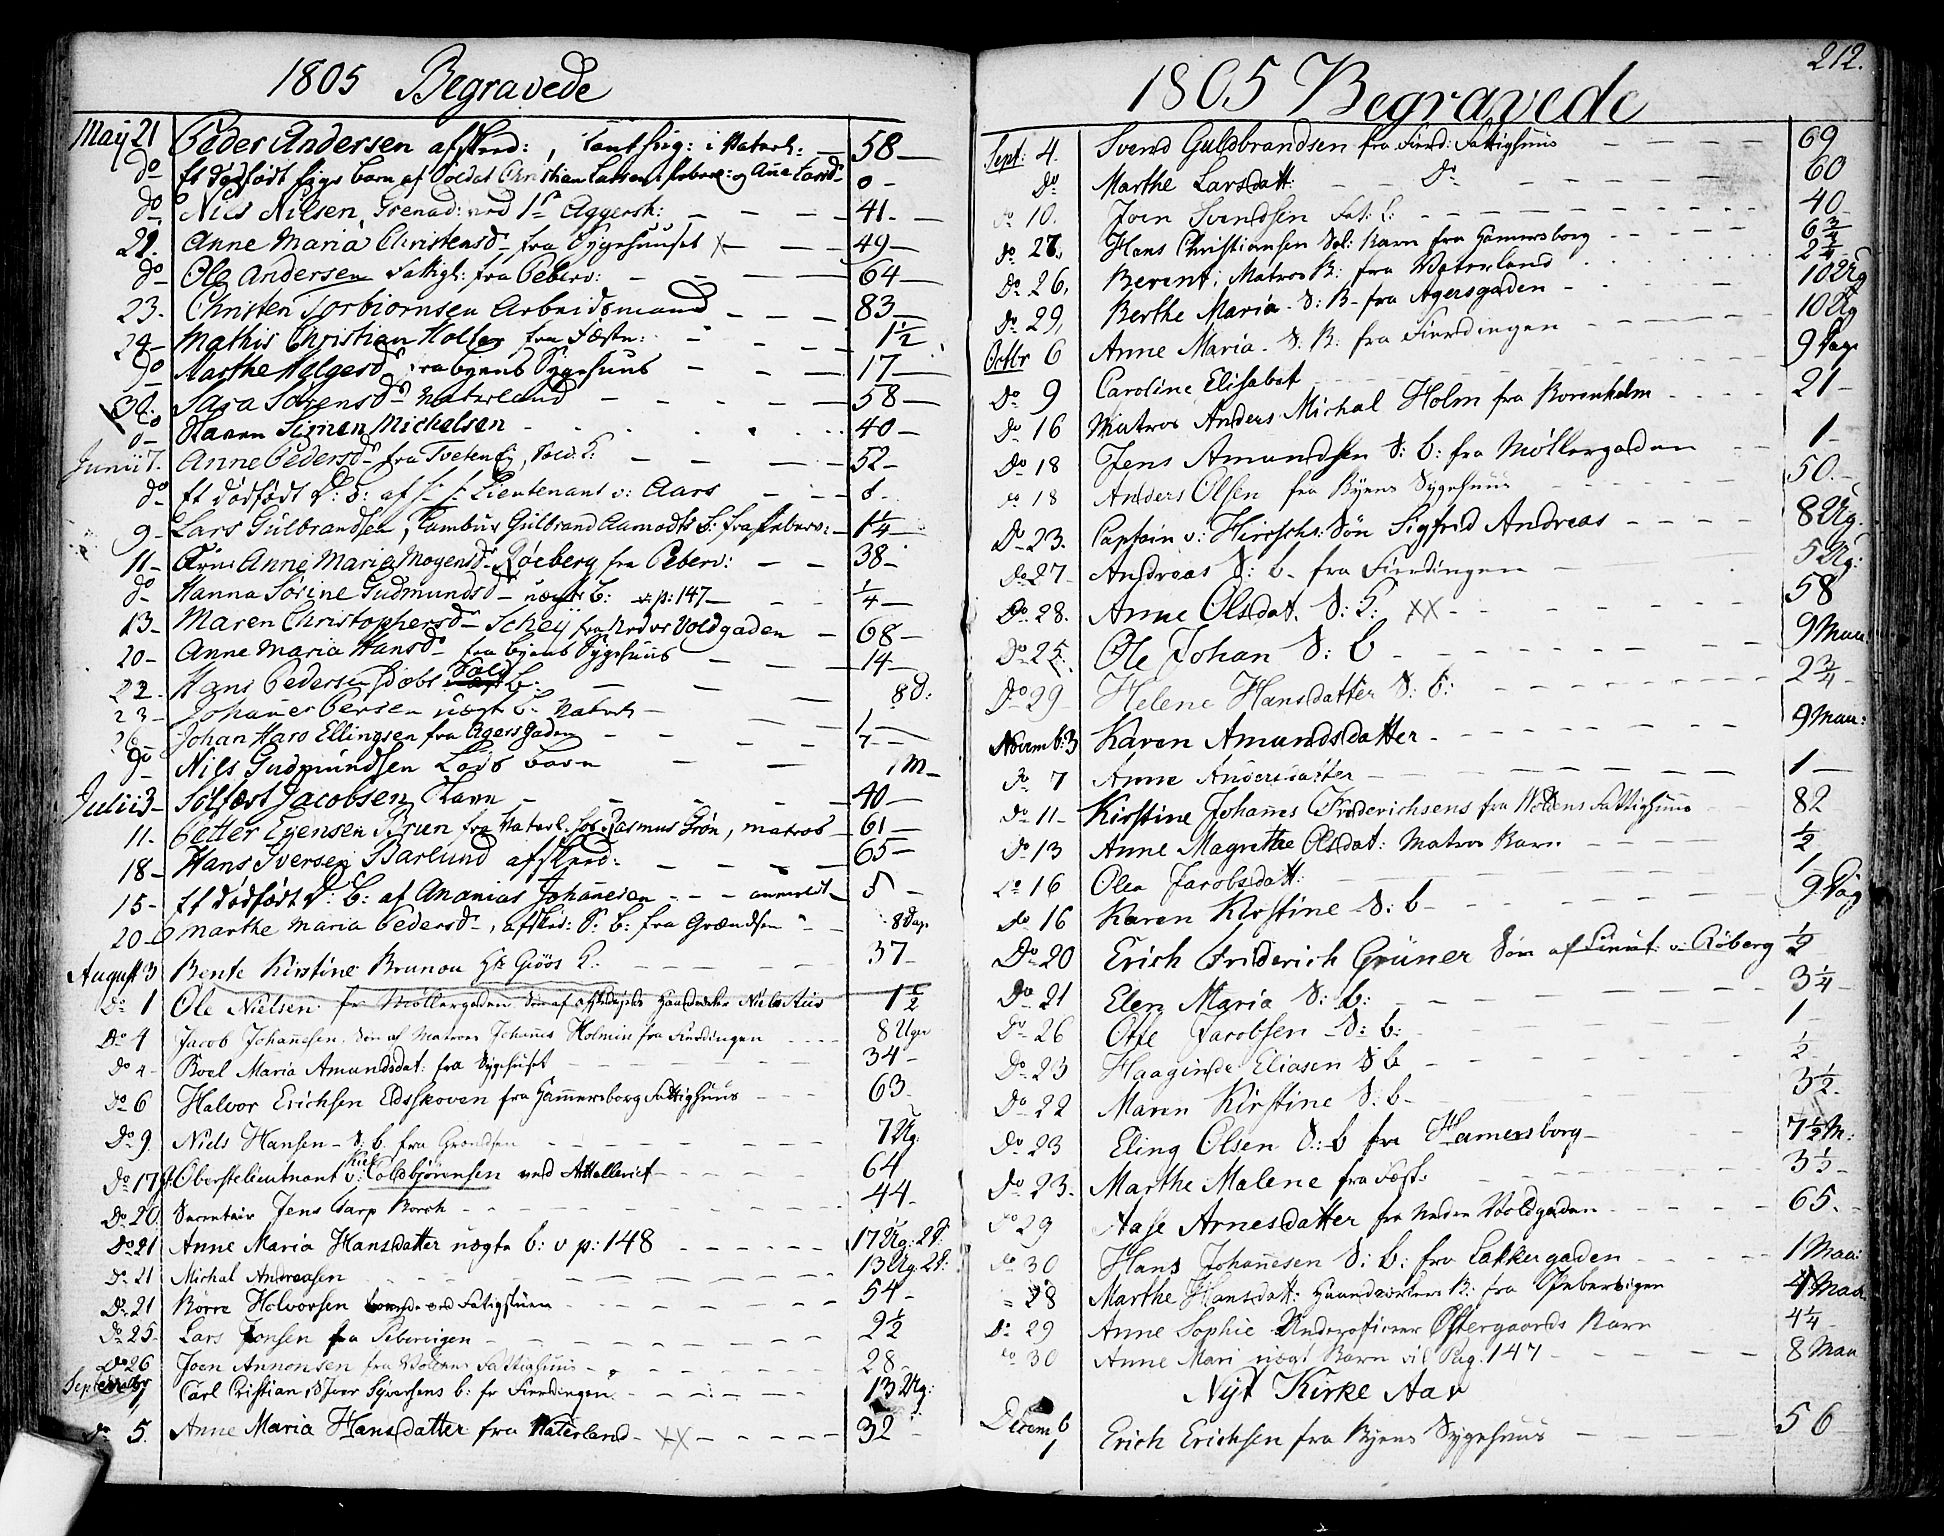 1805 Begravede
May 21 Peder Andersen afsked: i Vaterl: — 58 —
do Et dødfødt Pige barn af Soldat Christian Larsen i Pebere: og Ane Larsd — 0 —
do Nils Nilsen, Grenad: ved 1ste Aggersh: — 41 —
22. Anne Maria Christensd fra Sygehuuset X — 49 —
do Ole Andersen Fattigl: fra Peberv: — 64 —
23. Christen Torbiornsen Arbeidsmand — 83 —
24 — Mathis Christian Holter fra Fæstn: — 1½
do Marthe Helgesd fra byens Sygehuus — 17 —
30. Sara Sørensd Vaterland — 58 —
do Simen Michelsen — 40 —
Junii 7. Anne Pedersd fra Tveten — 52 —
do Et dødfødt D: B: af Lieutenant v: Aars — 0 —
9 — Lars Gulbrandsen, Tambur Gulbrand Aamodts b: fra Peberv: — 1¼ —
11 — Anne Maria Mogensd Røeberg fra Peberv: — 38 —
do Hanna Sørine Gudmundsd uægte b: v. p: 147 — ¼ —
13 — Maren Christophersd Scheÿ fra Nedre Voldgaden — 68 —
20 — Anne Maria Hansd fra byens Sygehuus — 14 —
22 — Hans Pedersen Sold b: — 8 d:
23 — Johannes Persen uægt b: Vaterl —
26 — Johan Haro Ellingsen fra Agers Gaden —
do Nils Gudmundsen barn — 1 M —
Julii 3 — Jacobsen — 40 —
11. Petter Egensen Brun fra Vaterl. Rasmus Grøn, matros — 61 —
18 — Hans Iversen Barlund afsked: — 65 —
15 — Et dødfødt D: B: af Ananias Johannesen — anmeldt — —
20 — Marthe Maria Pedersd, afsked: S: b: fra Grændsen — 8 Dage
August 3 Bente Kirstine Brunou — 37 —
Do 1 Ole Nielsen fr Møllergaden Søn af — 1½
Do 4 Jacob Johannesen Søn af Matros Johannes Holmen fra Fierdingen — 8 Uger
Do 4 — Boel Maria Amundsdat: fra Sygehuset — 34 —
Do 6 Halvor Erichsen Edskoven fra Hammersborg Fattighuus — 63 —
Do 9. Niels Hansen — S: b. fra Grændsen — 7 Ug:
Do 17 Oberstelieutnant v: Coldbjørensen ved Artilleriet — 64
Do 20. Secretair Jens Carp Borch — 44 —
Do 21 Anne Maria Hansdatter uægte b: v p: 148 — 17 Ug: 2 d:
Do 21 Michal Andreasen — 13 Ug 2 d:
Do 21 Børre Holvorsen — 54 —
Do 25. Lars Jonsen fra Pebervigen — 2½
Do 26 Joen Annonsen fra Woldens Fattighuus — 28 —
September 1 Carl Cristian Syversens b: fr Fierdingen — 13 Ug:
do 5. Anne Maria Hansdatter fra Vaterland — XX — 32 —
212.
1805 Begravede
Sept: 4. Svend Guldbrandsen fra Fierd: Fattighuus — 69
Do Marthe Larsdatt: Do — 60
Do 10. Joen Svendsen — 40
Do 27. Hans Christiansen Sol: Barn fra Hamersborg — 6¾
Do 26, Berent: Matros B: fra Vaterland — 2¼
Do 29, Berthe Maria S: B fra Agersgaden — 10 Ug
Octbr 6 Anne Maria S. B: fra Fierdingen — 10 Ug
Do 9 Caroline Elisabet — 9 Dage
Do 16 Matros Anders Michal Holm fra Bornholm — 21 —
Do 18 Jens Amundsen S: b: fra Møllergaden — 1 —
Do 18 Anders Olsen fra Byens Sygehuus — 50. —
Do 23. Captain v: Hirschs: Søn Sigfrid Andreas — 8 Ug.
Do 27 — Andreas S: b — fra Fierdingen — 5 Ug:
Do 28. Anne Olsdat. S: XX — 58
Do 25 Ole Johan S: b — 9 Maa.
Do 29 Helene Hansdatter S: b: — 2¾ —
Novemb: 3 Karen Amundsdatter — 9 Maa:
Do 7 Anne Andersdatter — 1 —
Do 11 — Kirstine Johannes Friderichsens fra Woldens Fattighuus — 82
Do 13 Anne Magrethe Olsdat: Matros Barn — ½
Do 16 Olea Jacobsdatt: — 1
Do 16 Karen Kirstine S: b — 9 Dag
Do 20 Erich Friderich Grüner Søn af Lieut: v: Røberg ½
Do 21 Elen Maria S: b: — 3¼ —
Do 26 Otte Jacobsen S: b: — 1 —
Do 23 Eliasen S b — ½
Do 22 Maren Kirstine S: b — 3½ —
Do 23 Eling Olsen S: b fra Hamersborg — 7½ M:
Do 23. Marthe Malene fra Fæst: —
Do 29 Aase Arnesdatter fra Neder Woldgaden — 65. —
Do 30 Hans Johannesen S: b: fra Lakkergaden — 1 Maa:
28 Marthe Hansdatt: Haandværkers B: fra Pebervigen — 4 Maa
Do 29 Anne Sophie Underofficeer Østergaards Barn 4¼ —
Do 30 Anne Mari uægt Barn vil Pag. 147 — 8 Maa
Nyt Kirke Aar
Decem 1 Erich Erichsen fra Byens Sygehuus — 56